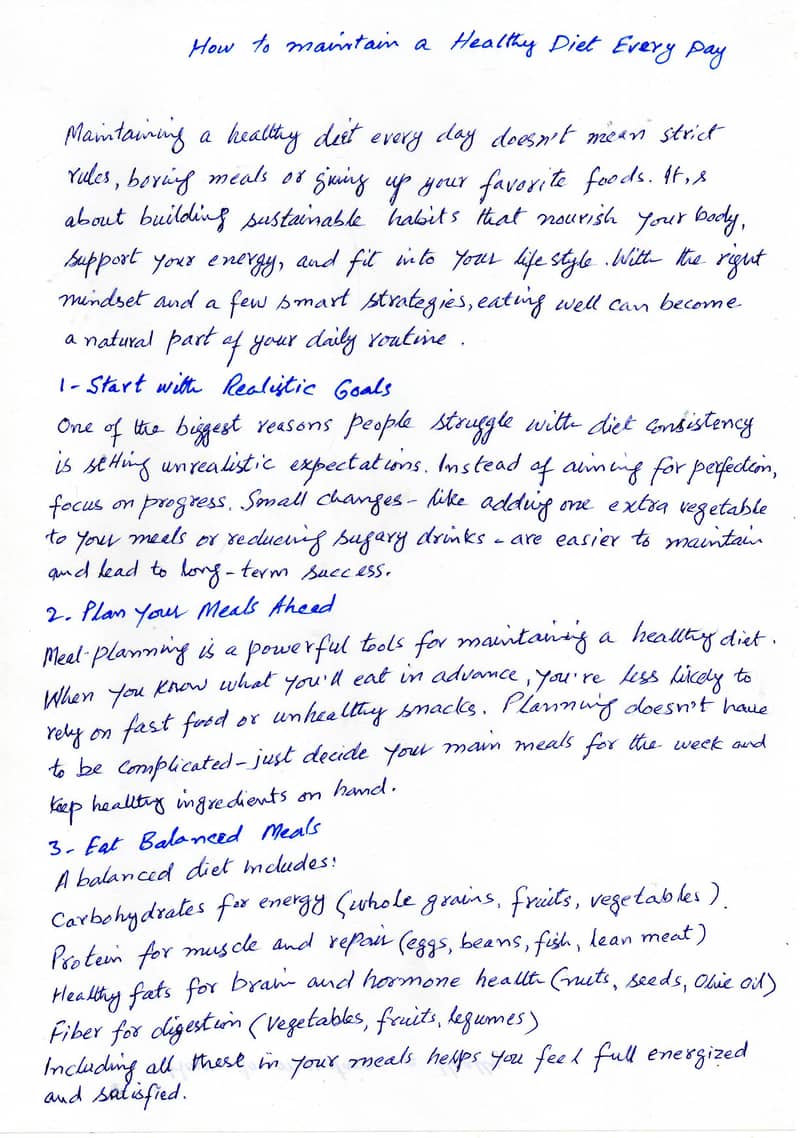 How to maintain a Healthy Diet Every Day
Maintaining a healthy diet every day doesn't mean strict
rules, boring meals or giving up your favorite foods. It,s
about building sustainable habits that nourish your body,
support your energy, and fit into your life style. With the right
mindset and a few smart strategies, eating well can become
a natural part of your daily routine.
1- Start with Realistic Goals
One of the biggest reasons people struggle with diet consistency
is setting unrealistic expectations. Instead of aiming for perfection,
focus on progress. Small changes - like adding one extra vegetable
to your meals or reducing sugary drinks - are easier to maintain
and lead to long-term success.
2. Plan Your Meals Ahead
Meal-planning is a powerful tools for maintaining a healthy diet.
When you know what you'll eat in advance, you're less likely to
rely on fast food or unhealthy snacks. Planning doesn't have
to be complicated - just decide your main meals for the week and
keep healthy ingredients on hand.
3- Eat Balanced Meals
A balanced diet includes:
Carbohydrates for energy (whole grains, fruits, vegetables).
Protein for muscle and repair (eggs, beans, fish, lean meat)
Healthy fats for brain and hormone health (nuts, seeds, Olive oil)
Fiber for digestion (vegetables, fruits, legumes)
Including all these in your meals helps you feel full energized
and satisfied.